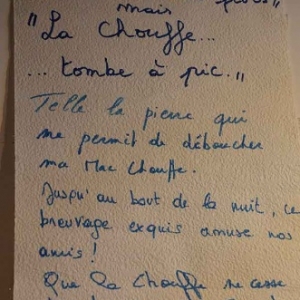 mais
"La Chouffe...
... tombe à pic."
Telle la pierre qui
me permit de déboucher
ma Mac Chouffe.
Jusqu'au bout de la nuit, ce
breuvage exquis amuse nos
amis!
Que la Chouffe ne cesse